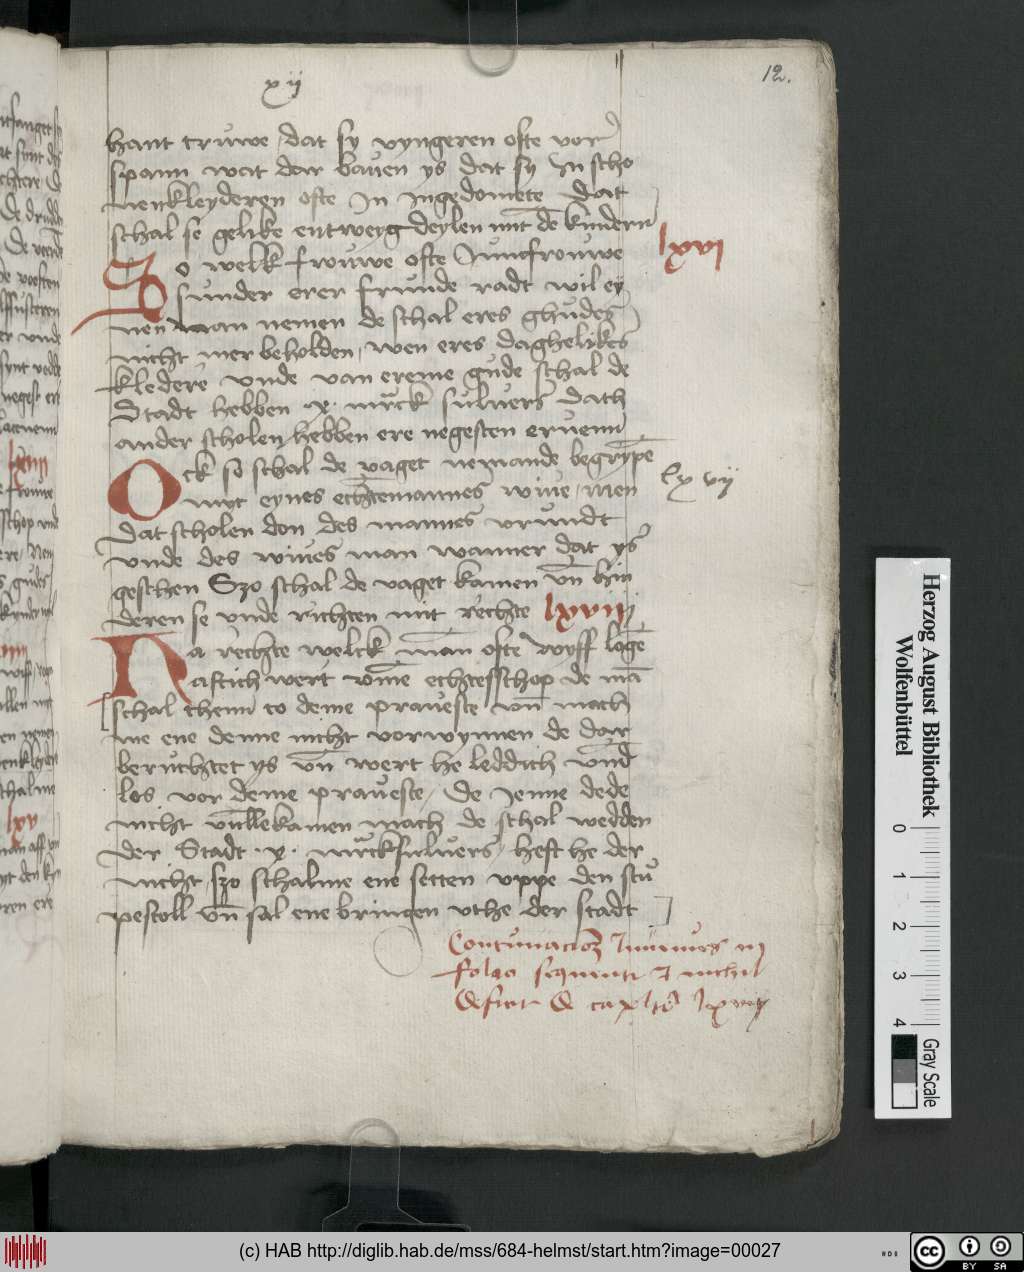 xij
12.
hant truwe dat sy vyngeren ofte vor
spann wat dar bauen ys dat sy In scho
nenkleyderen ofte In Ingedomete Dat
schal se gelike entweyg deylen mit dē kinderen
lxvj
So welk frouwe ofte Juncfrouwe
sunder erer frunde radt wil ey
nen man nemen de schal eres ghudes
nicht mer beholden, wen eres daghelikes
kledere vnde van ereme gude schal de
Stadt hebben .x. mrck suluers Dath
ander scholen hebben ere negesten eruenn
Ock so schal de vaget nemande begrypē
lxvij
myt eynes echtemannes wiue, Men
Dat scholen don des mannes vrundt
vnde des wiues man wanner dat ys
geschen Szo schal de vaget kamen vn̄ hin
deren se vnde richten mit rechte lxviij
Na rechte welck man ofte wyff logē
aftich wert vmē echtesschop de mā
schal themi to deme praueste vn̄ mach
me ene denne nicht vorwynnen de dar
beruchtet ys vn̄ wert he leddich vnd
los vor deme praueste, De Jenne dede
nicht vullekamen mach de schal wedden
der Stadt .x. mrcksuluers, heft he der
nicht, szo schalme ene setten vppe den stu
pestoll vn̄ sal ene bringen vthe der stadt
folio sequenti nichil
deficit de lxviij
Herzog August Bibliothek
Wolfenbüttel
0 1 2 3 4
Gray Scale
(c) HAB http://diglib.hab.de/mss/684-helmst/start.htm?image=00027
cc BY SA